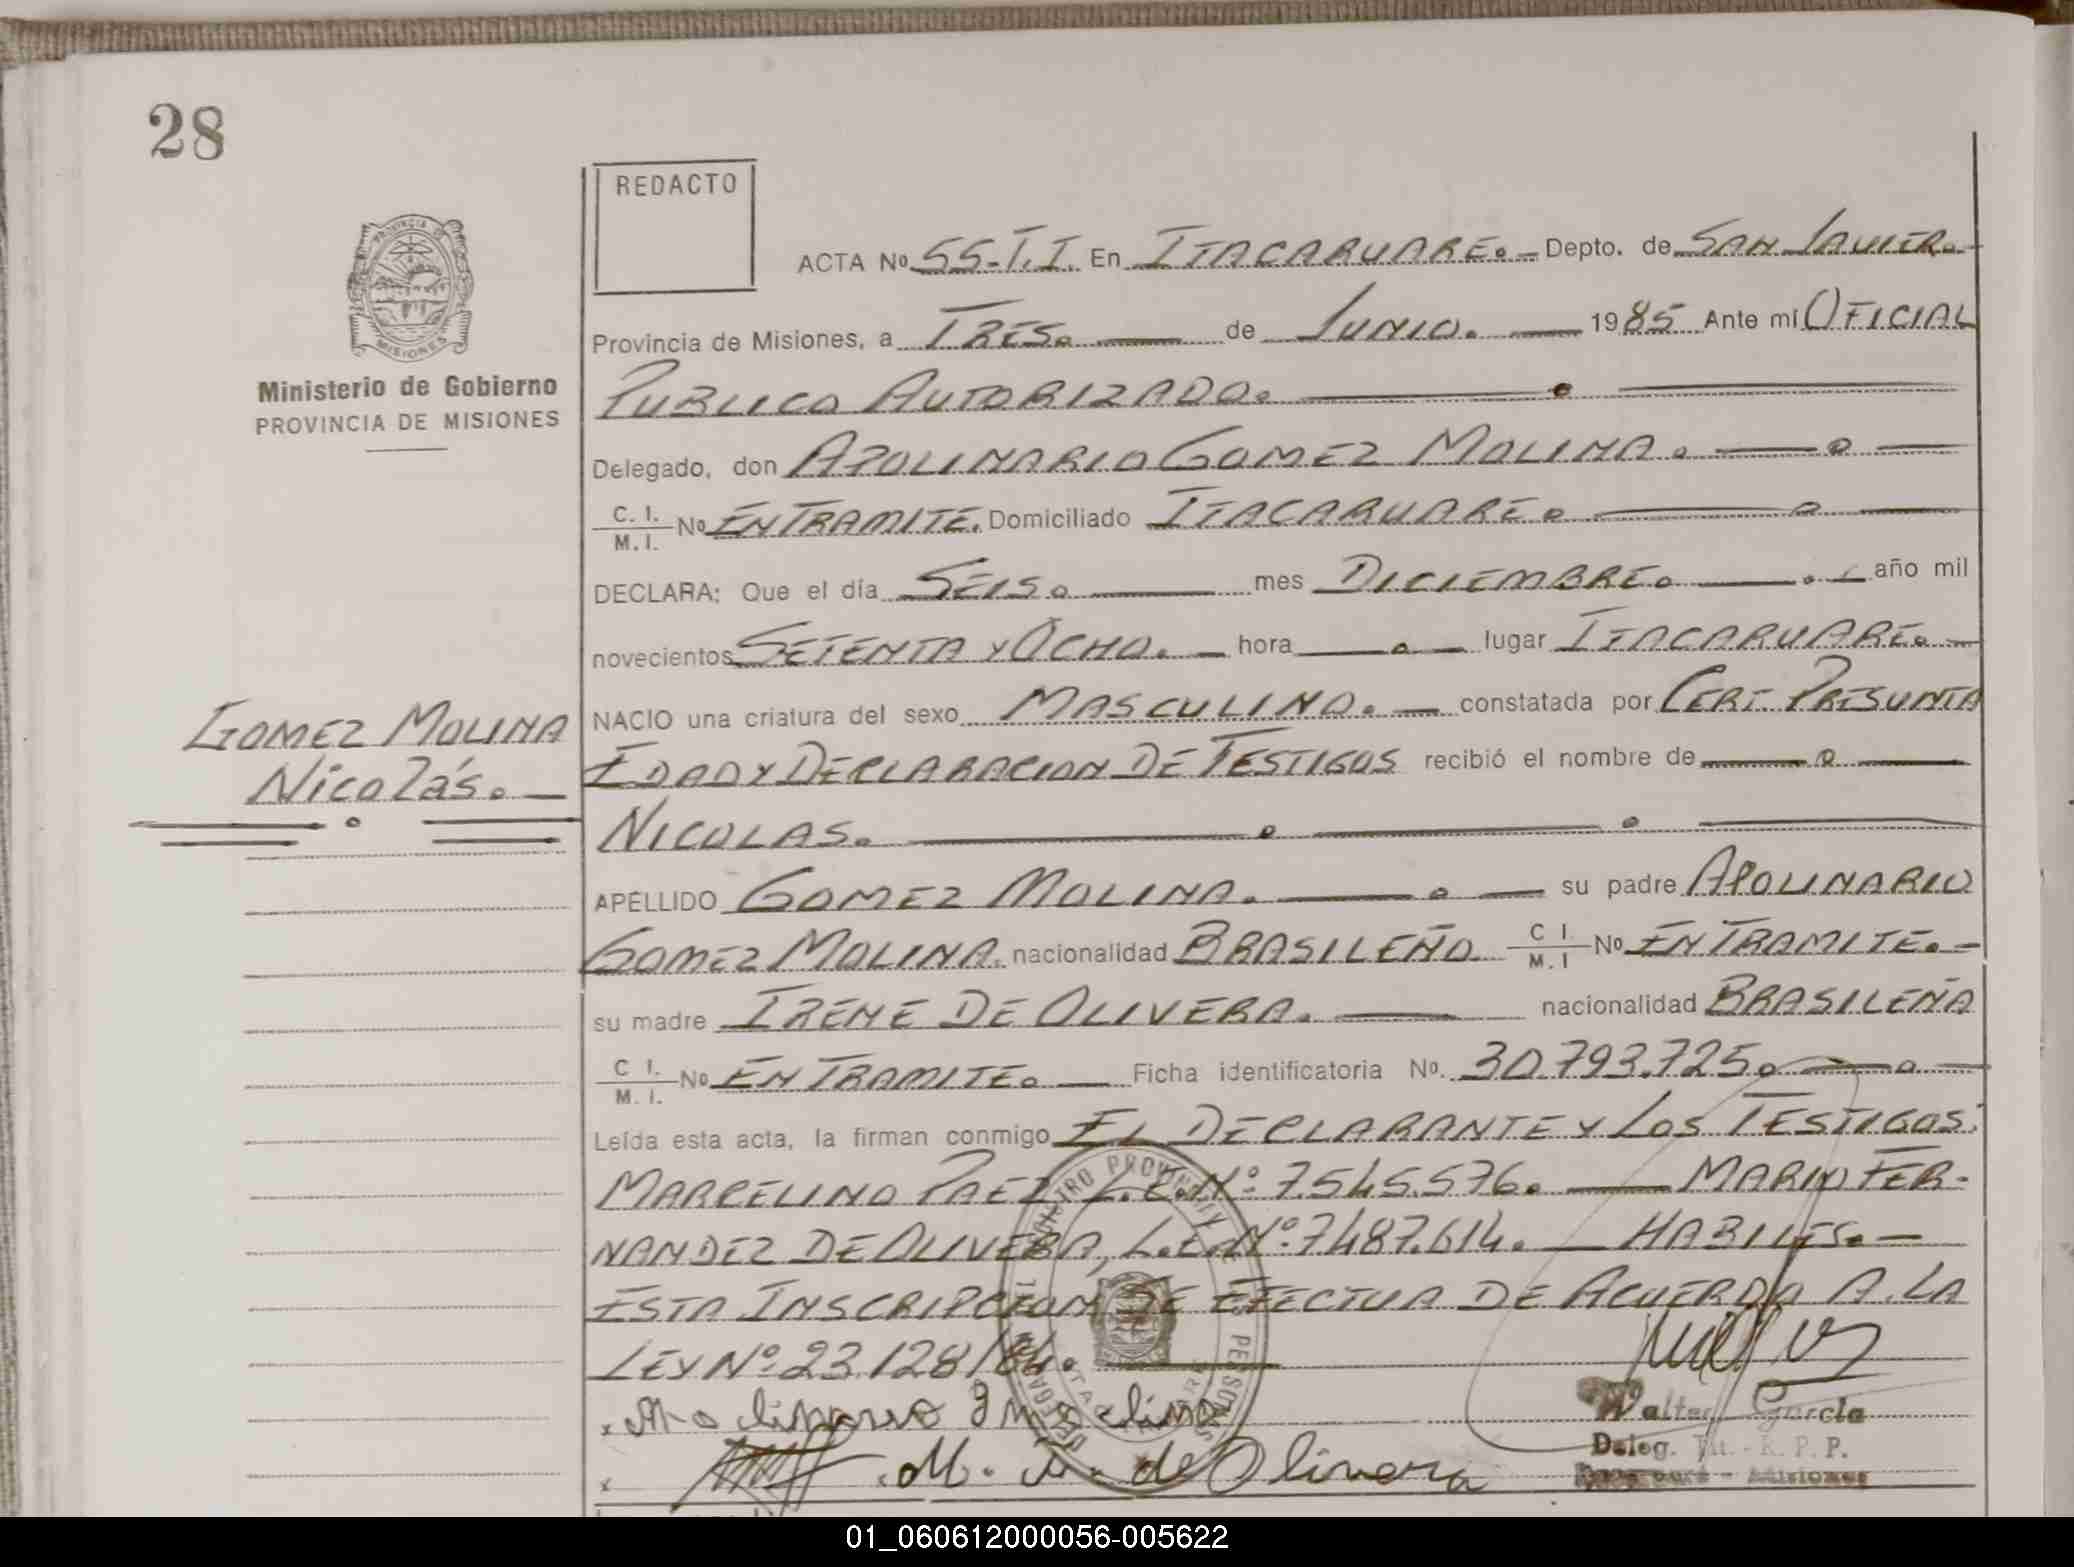 28
REDACTO
ACTA Nº 55-T.I. En ITACARUARE.- Depto. de SAN JAVIER.-
Provincia de Misiones, a TRES. de JUNIO. 1985 Ante mi OFICIAL
PUBLICO AUTORIZADO.
Delegado, don APOLINARIO GOMEZ MOLINA.
C. I. / M. I. Nº EN TRAMITE. Domiciliado ITACARUARE.
DECLARA: Que el día SEIS. mes DICIEMBRE. año mil
novecientos SETENTA Y OCHO. hora lugar ITACARUARE.
NACIO una criatura del sexo MASCULINO. constatada por CERT. PRESUNTA
EDAD Y DECLARACION DE TESTIGOS recibió el nombre de
NICOLAS.
APELLIDO GOMEZ MOLINA. su padre APOLINARIO
GOMEZ MOLINA. nacionalidad BRASILEÑO C I. / M. I Nº EN TRAMITE.-
su madre IRENE DE OLIVERA. nacionalidad BRASILEÑA
C I. / M. I. Nº EN TRAMITE. Ficha identificatoria Nº. 30.793.725.
Leída esta acta, la firman conmigo EL DECLARANTE Y LOS TESTIGOS:
MARCELINO PAEZ L.E. Nº 7.545.576. MARIO FER-
NANDEZ DE OLIVERA, L.E. Nº 7.487.614. HABILES.-
ESTA INSCRIPCION SE EFECTUA DE ACUERDO A LA
LEY Nº 23.128/84.
M. de Olivera
Walter García
Deleg. Tit. - R. P. P.
Misiones
PROVINCIA DE
MISIONES
Ministerio de Gobierno
PROVINCIA DE MISIONES
GOMEZ MOLINA
Nicolás.-
01_060612000056-005622